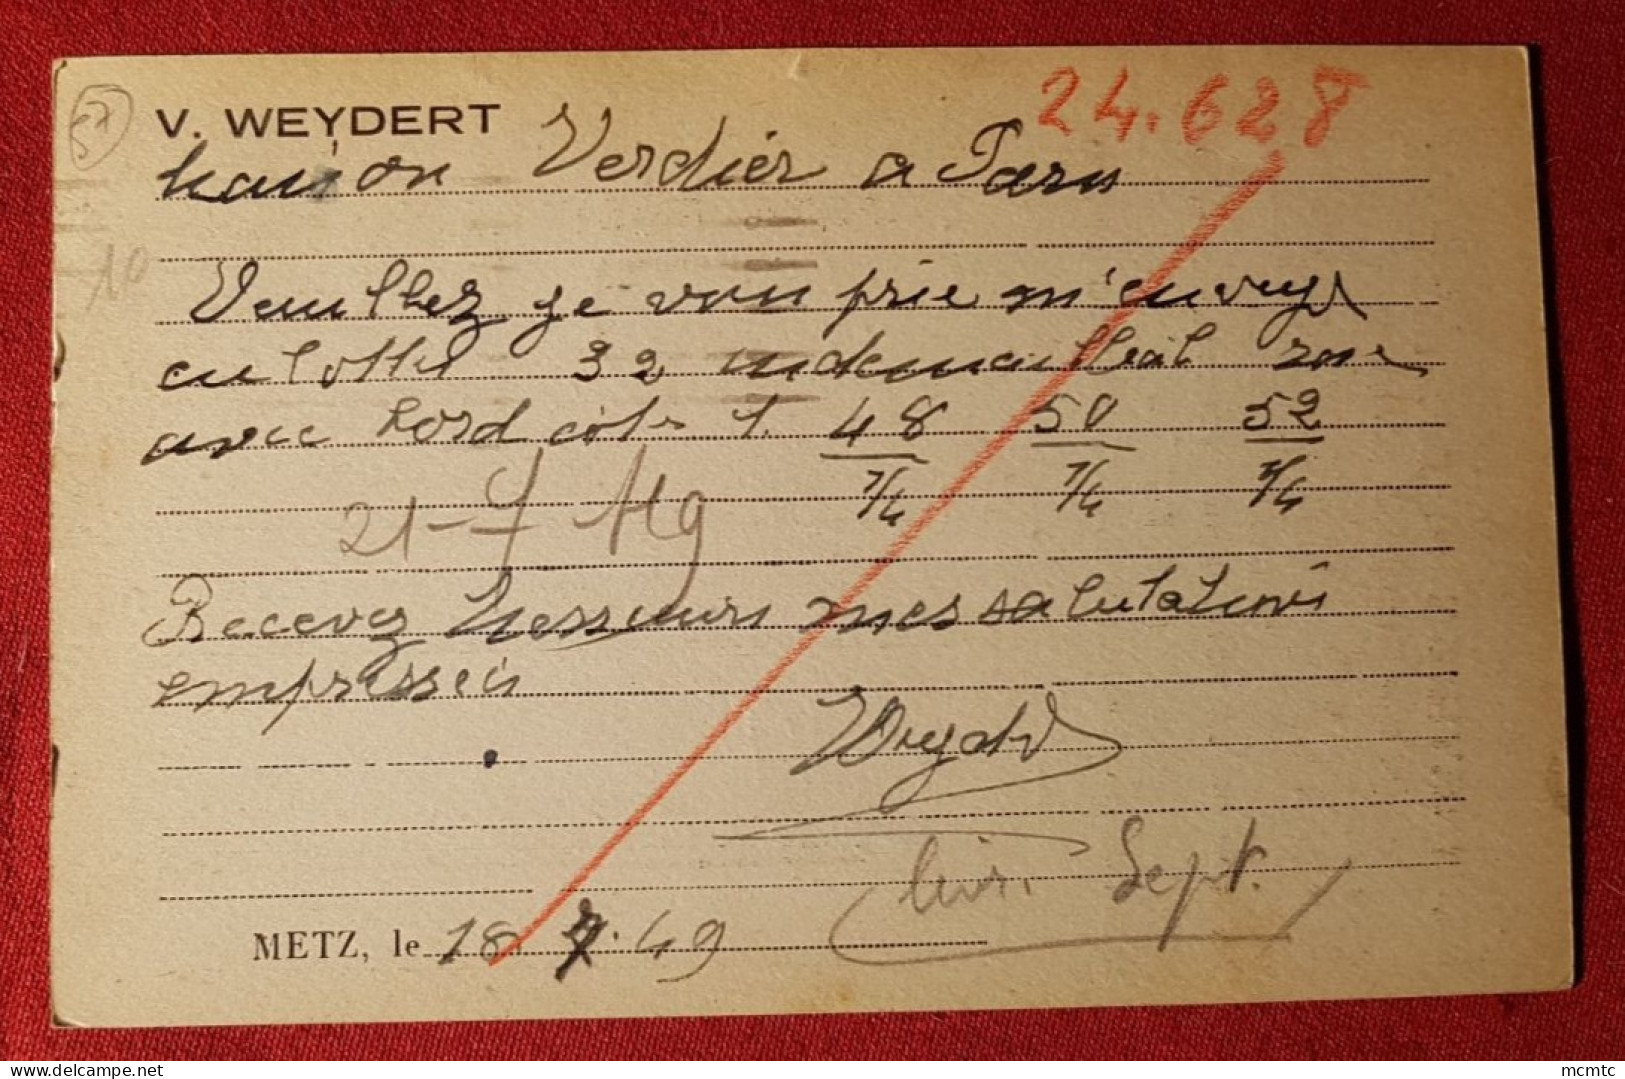 57
V. WEYDERT
24.628
Maison Verdier a Paris
10
Veuillez je vous prie m'envoyer
culottes 32 indemaillable rose
avec bord côte 1. 48 50 52
7/4 7/4 7/4
21-7
Recevez Messieurs mes salutations
empressées
Weydert
livr. Sept.
METZ, le 18 7. 49
mcmtc
delcampe.net